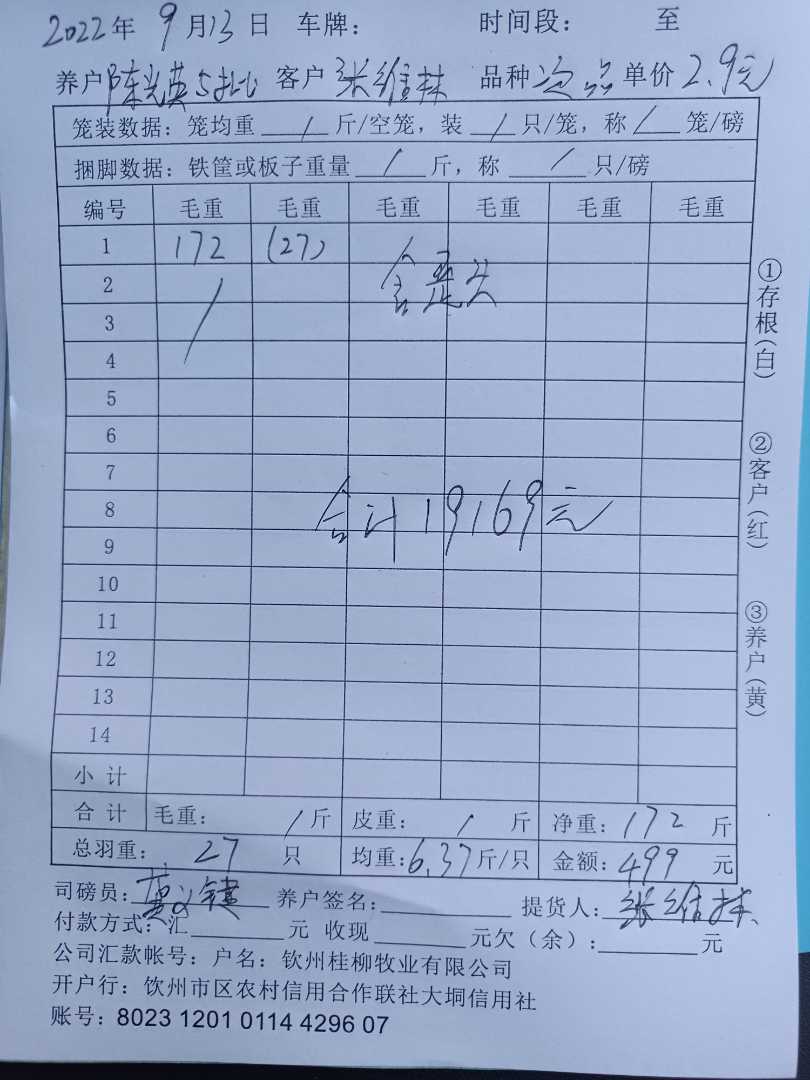 2022年 9月13日 车牌: 时间段: 至
养户 陈光英5批 客户 张维林 品种 次品 单价 2.9元
笼装数据: 笼均重 / 斤/空笼, 装 / 只/笼, 称 / 笼/磅
捆脚数据: 铁筐或板子重量 / 斤, 称 / 只/磅
编号 毛重 毛重 毛重 毛重 毛重 毛重
1 172 (27)
2 /
3
4
5
6
7
8 合计19169元
9
10
11
12
13
14
小计
合计 毛重: / 斤 皮重: / 斤 净重: 172 斤
总羽重: 27 只 均重: 6.37斤/只 金额: 499 元
司磅员: 养户签名: 提货人: 张维林
付款方式: 汇 元 收现 元欠(余): 元
公司汇款帐号: 户名: 钦州桂柳牧业有限公司
开户行: 钦州市区农村信用合作联社大垌信用社
账号: 8023 1201 0114 4296 07
①存根(白)
②客户(红)
③养户(黄)